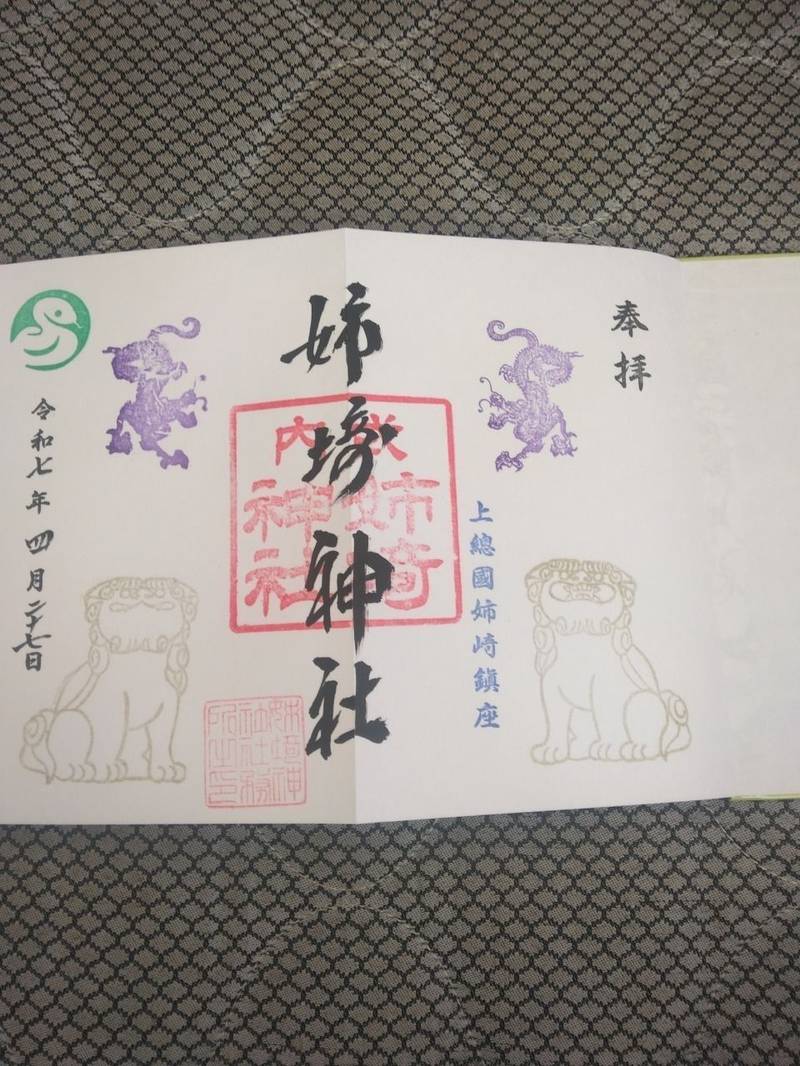 奉拝
上總國姉崎鎮座
姉埼神社
式内
姉埼
神社
姉埼神
社社務
所之印
令和七年四月二十七日